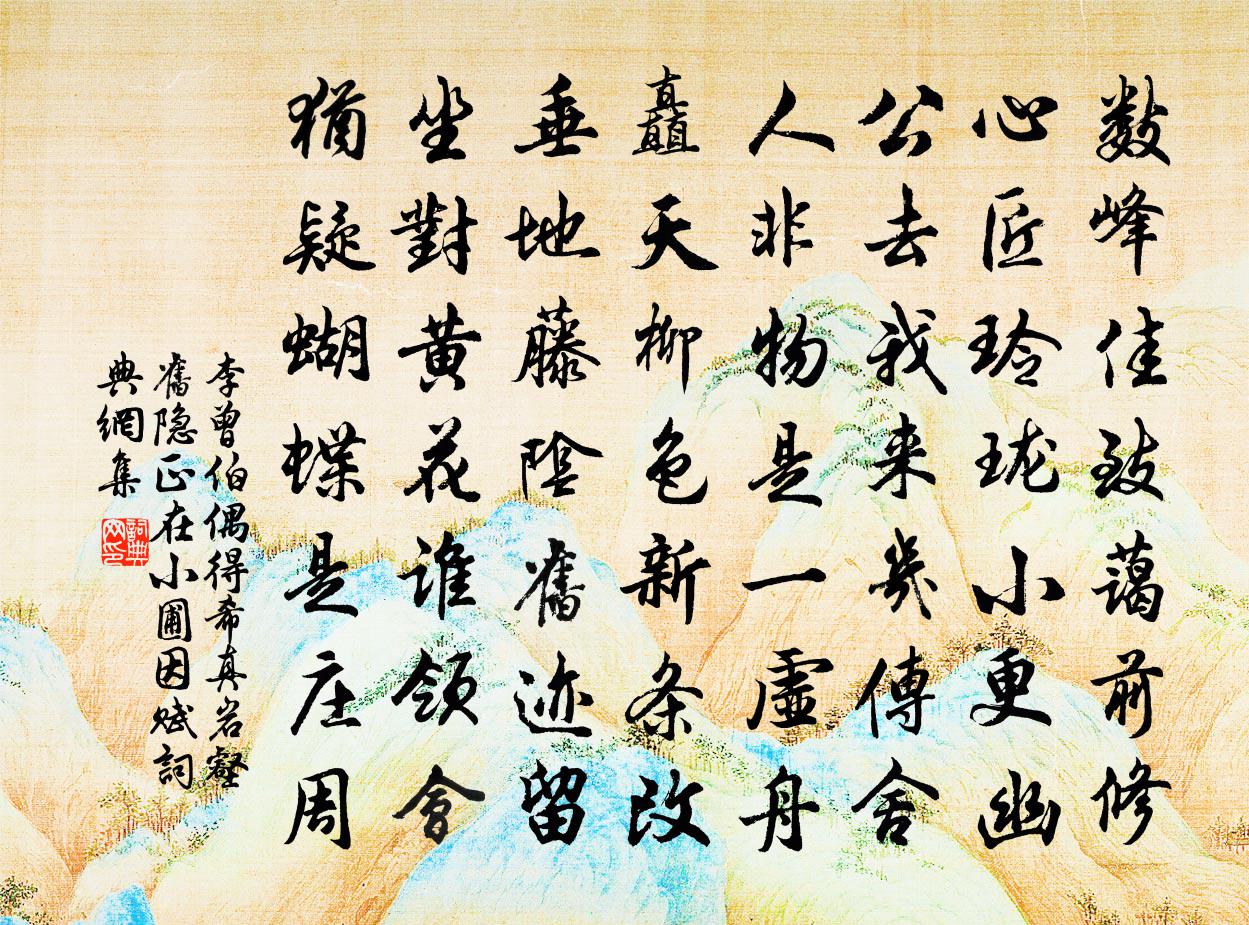 数峰佳致蔼前修
心匠玲珑小更幽
公去我来几傳舍
人非物是一虚舟
矗天柳色新条改
垂地藤陰舊迹留
坐對黄花谁领會
猶疑蝴蝶是庄周
李曾伯偶得希真岩壑
舊隐正在小圃因赋詞
典網集
詞典网印